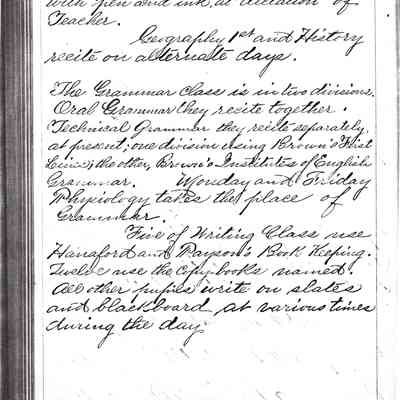 with pen and ink at dictation of
Teacher.
Geography 1st and History
recite on alternate days.
The Grammar Class is in two divisions.
Oral Grammar they recite together.
Technical Grammar they recite separately
at present; one division using Brown's First
Lines; the other, Brown's Institutes of English
Grammar. Monday and Friday
Physiology takes the place of
Grammar.
Five of Writing Class use
Hanaford and Payson's Book Keeping.
Twelve use the Copy books named.
All other pupils write on slates
and blackboard at various times
during the day.